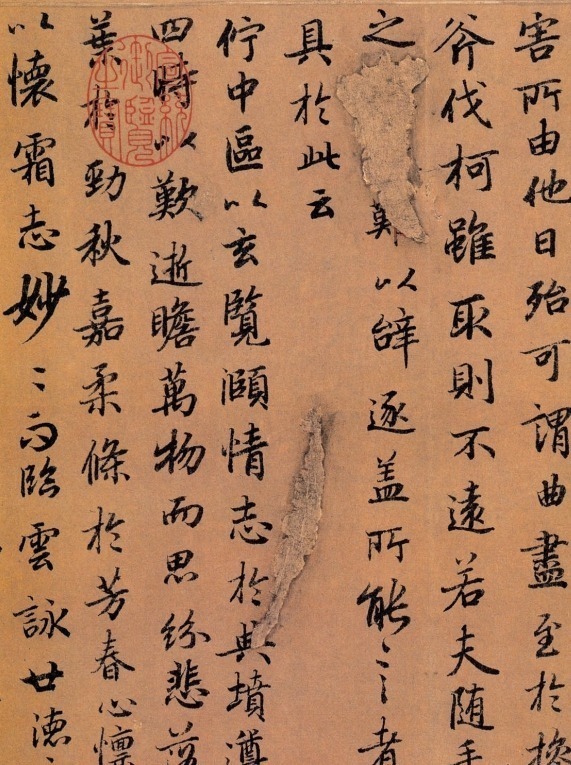 害所由他日殆可謂曲盡至於操
斧伐柯雖取則不遠若夫随手
之難以辝逐盖所能言者
具於此云
佇中區以玄覽頤情志於典墳遵
四時以歎逝瞻萬物而思紛悲落
葉於勁秋嘉柔條於芳春心懔
以懷霜志妙〻而臨雲詠世德